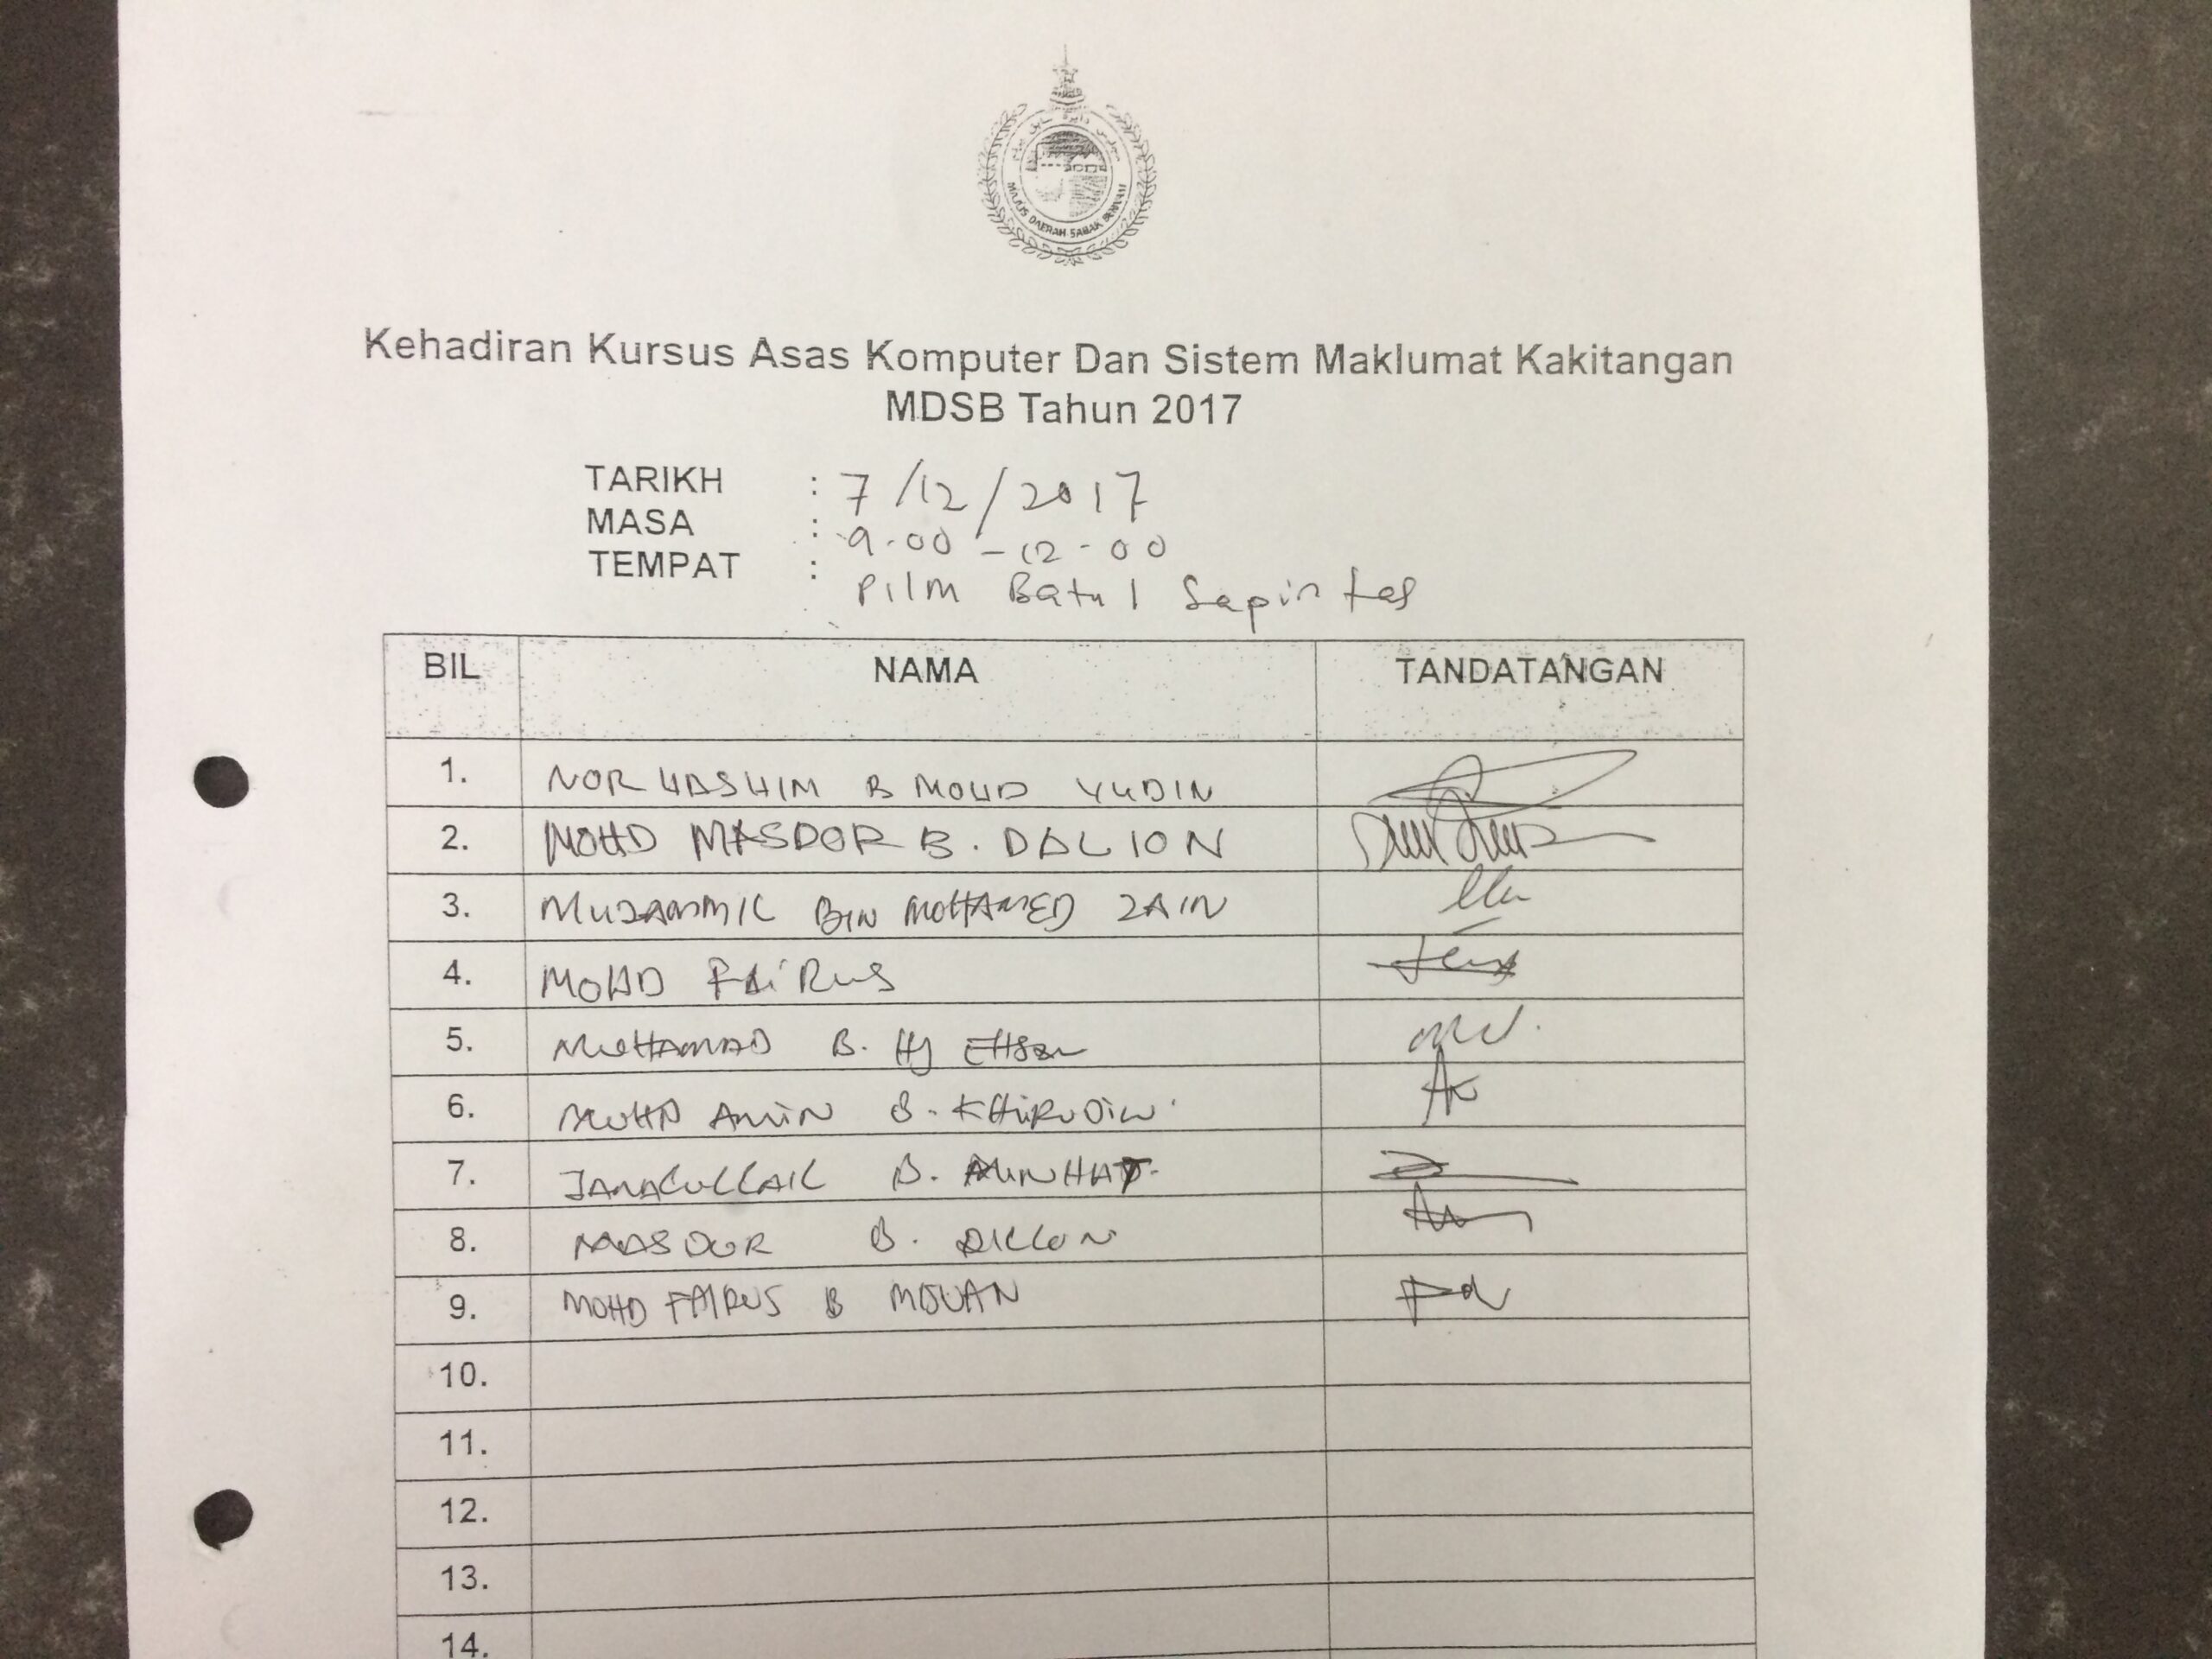 MAJLIS DAERAH SABAK BERNAM
Kehadiran Kursus Asas Komputer Dan Sistem Maklumat Kakitangan
MDSB Tahun 2017
TARIKH : 7/12/2017
MASA : 9.00 - 12.00
TEMPAT : PI1M Batu 1 Sapintas
BIL NAMA TANDATANGAN
1. NOR HASHIM B MOHD YUDIN
2. MOHD MASDOR B. DALION
3. MUZAMMIL BIN MOHAMED ZAIN
4. MOHD FAiRUS
5. MUHAMAD B. HJ EHSAN
6. MOHD AMiN B. KHAiRUDiN
7. JAMALULLAIL B.
8. MASDOR B.
9. MOHD FAIRUS B
10.
11.
12.
13.
14.